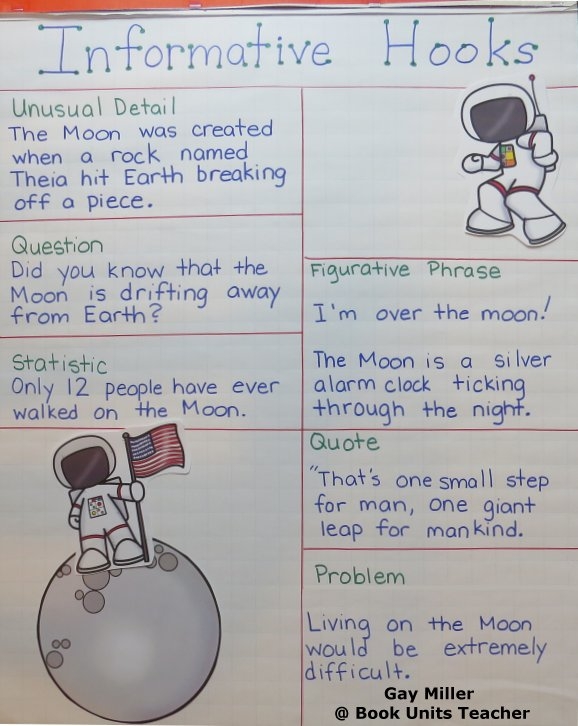 Informative Hooks
Unusual Detail
The Moon was created
when a rock named
Theia hit Earth breaking
off a piece.
Question
Did you know that the
Moon is drifting away
from Earth?
Statistic
Only 12 people have ever
walked on the Moon.
Figurative Phrase
I'm over the moon!
The Moon is a silver
alarm clock ticking
through the night.
Quote
"That's one small step
for man, one giant
leap for mankind.
Problem
Living on the Moon
would be extremely
difficult.
Gay Miller
@ Book Units Teacher